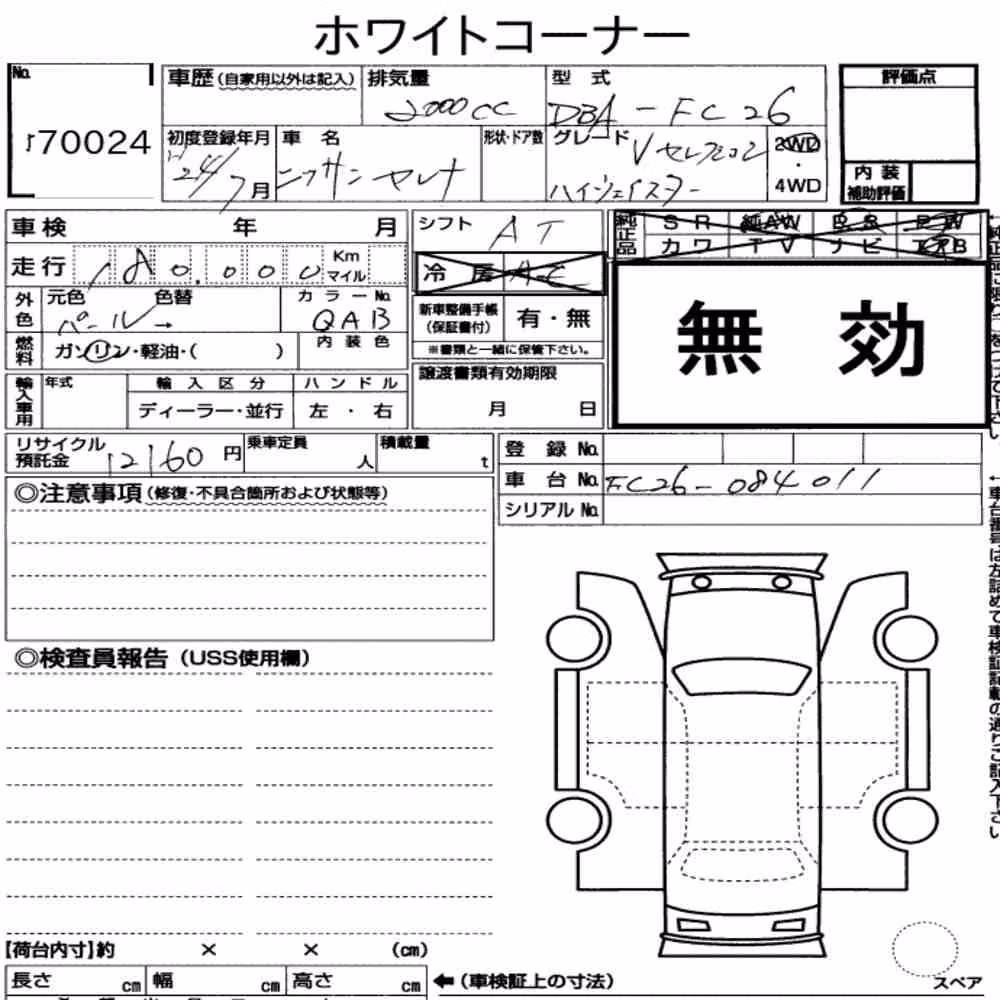 ホワイトコーナー
No. 170024
車歴(自家用以外は記入) 排気量 2000CC 型式 DBA-FC26
評価点
初度登録年月 H24/7月 車名 ニッサンセレナ 形状・ドア数 グレード Vセレクション ハイウェイスター 2WD・4WD
内装補助評価
車検 年 月
シフト AT
純正品 SR 純AW PS PW
カワ TV ナビ エアB
走行 Km マイル
冷房 A・C
無効
外色 元色 パール 色替 → カラーNo. QAB
内装色
新車整備手帳(保証書付) 有・無
※書類と一緒に保管下さい。
燃料 ガソリン・軽油・( )
譲渡書類有効期限
月 日
輸入車用 年式 輸入区分 ハンドル
ディーラー・並行 左・右
リサイクル預託金 12160円 乗車定員 人 積載量 t
登録No.
車台No. FC26-084011
シリアルNo.
◎注意事項(修復・不具合箇所および状態等)
◎検査員報告(USS使用欄)
←車台番号は左詰めで車検証記載の通りご記入下さい
【荷台内寸】約 × × (cm)
長さ cm 幅 cm 高さ cm
←(車検証上の寸法)
スペア